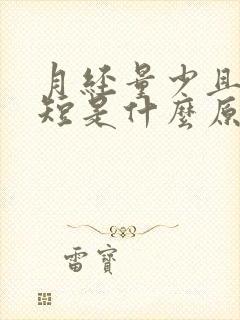 月經量少且
短是什麼原
雷寶